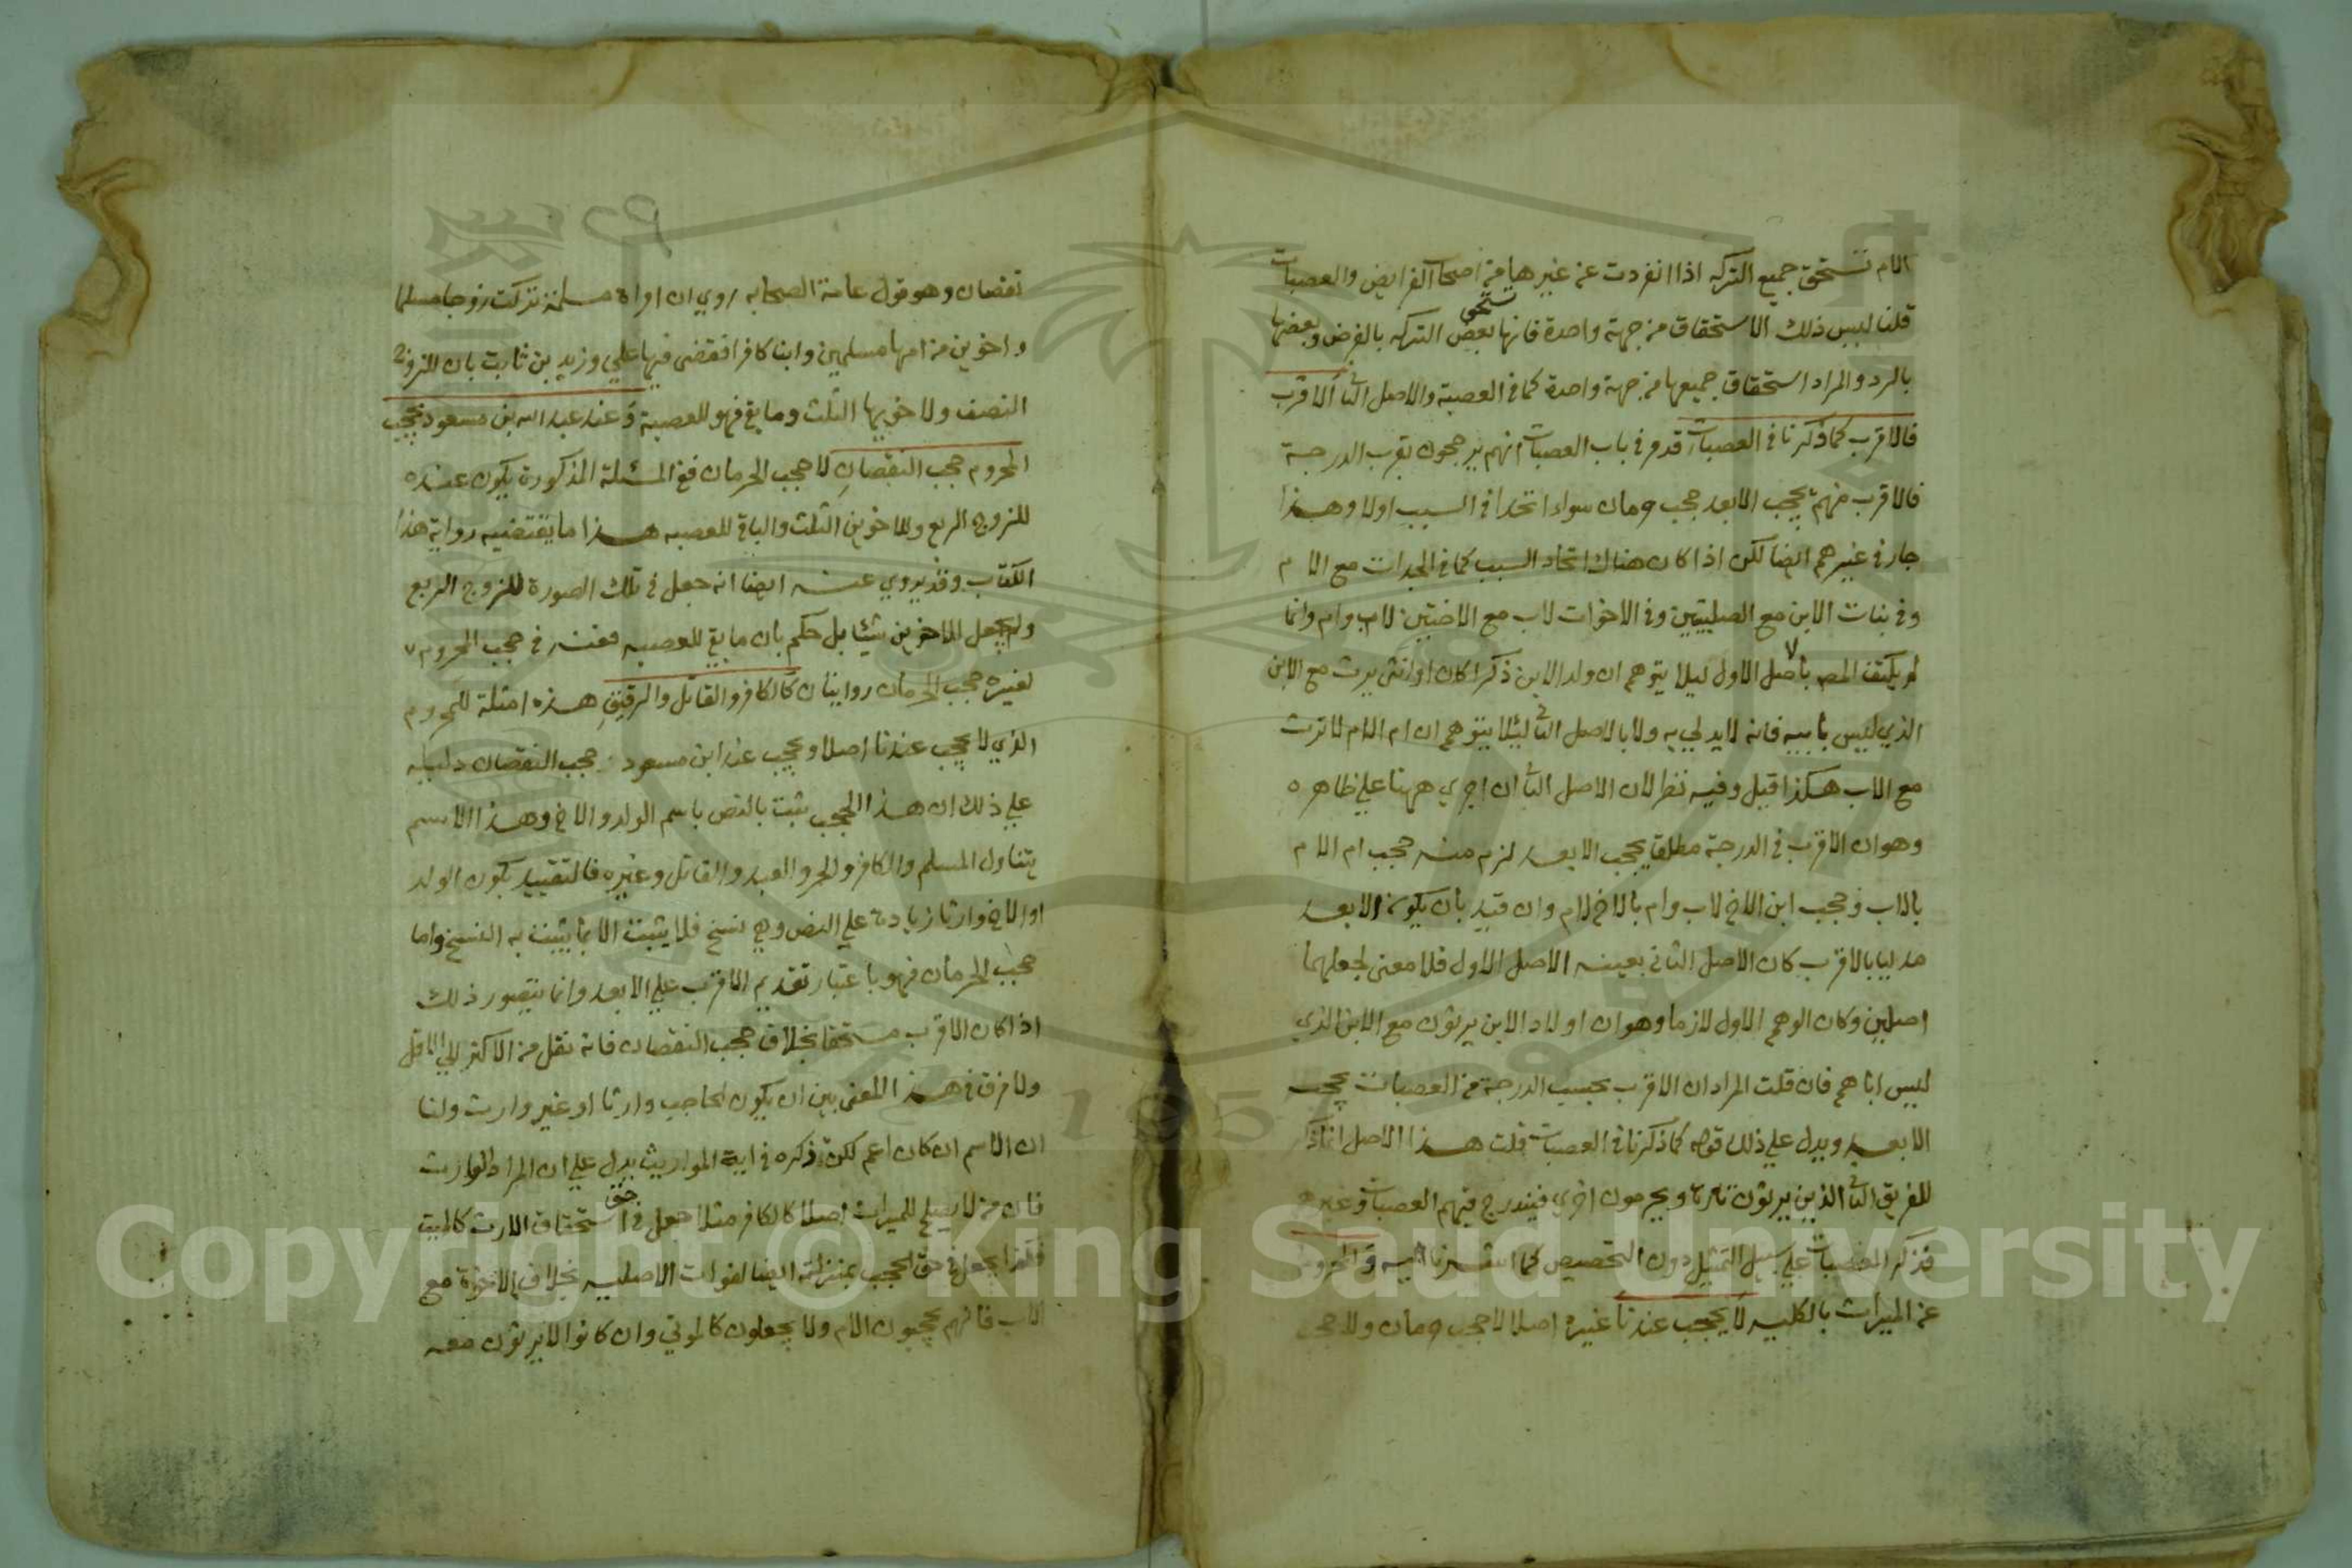 الام تستحق جميع التركه اذا انفردت عن غيرها من اصحاب الفرايض والعصبات
قلنا ليس ذلك الاستحقاق من جهة واحدة فانها تستحق بعض التركه بالفرض وبعضها
بالرد والمراد استحقاق جميعها من جهة واحدة كما في العصبة والاصل الثاني الاقرب
فالاقرب كما ذكرنا في العصبات قد مر في باب العصبات انهم يرجحون بقرب الدرجة
فالاقرب منهم يحجب الابعد حجب حرمان سواء اتحدا في السبب اولا وهذا
جار في غيرهم ايضا لكن اذا كان هناك اتحاد السبب كما في الجدات مع الام
وفي بنات الابن مع الصلبيتين وفي الاخوات لاب مع الاختين لاب وام وانما
لم يكتف المص بالاصل الاول ليلا يتوهم ان ولد الابن ذكرا كان او انثى يرث مع الابن
الذي ليس بابيه فانه لا يدلي به ولا بالاصل الثاني لئلا يتوهم ان ام الام لا ترث
مع الاب هكذا قيل وفيه نظر لان الاصل الثاني ان اجري ههنا علي ظاهره
وهو ان الاقرب في الدرجة مطلقا يحجب الابعد لزم منه حجب ام الام
بالاب وحجب ابن الاخ لاب وام بالاخ لام وان قيد بان يكون الابعد
مدليا بالاقرب كان الاصل الثاني بعينه الاصل الاول فلا معنى لجعلهما
اصلين وكان الوهم الاول لازما وهو ان اولاد الابن يرثون مع الابن الذي
ليس اباهم فان قلت المراد ان الاقرب بحسب الدرجة من العصبات يحجب
الابعد ويدل علي ذلك قوله كما ذكرنا في العصبات قلت هذا الاصل انما ذكر
للفريق الثاني الذين يرثون تارة ويحرمون اخري فيندرج فيهم العصبات وغيرهم
فذكر العصبات علي سبيل التمثيل دون التخصيص كما اشرنا اليه والمحروم
عن الميراث بالكلية لا يحجب عندنا غيره اصلا لا حجب حرمان ولا حجب
نقصان وهو قول عامة الصحابه روي ان امراة مسلمة تركت زوجا مسلما
واخوين من امها مسلمين وابنا كافرا فقضى فيها علي وزيد بن ثابت بان للزوج
النصف ولاخويها الثلث وما بقي فهو للعصبة وعند عبد الله بن مسعود يحجب
المحروم حجب النقصان لا حجب الحرمان ففي المسئلة المذكورة يكون عنده
للزوج الربع وللاخوين الثلث والباقي للعصبه هذا ما يقتضيه رواية هذا
الكتاب وقد يروي عنه ايضا انه جعل في تلك الصورة للزوج الربع
ولم يجعل للاخوين شيئا بل حكم بان ما بقي للعصبه فعنه في حجب المحروم
لغيره حجب الحرمان روايتان كالكافر والقاتل والرقيق هذه امثلة للمحروم
الذي لا يحجب عندنا اصلا ويحجب عند ابن مسعود حجب النقصان دليله
علي ذلك ان هذا الحجب يثبت بالنص باسم الولد والاخ وهذا الاسم
يتناول المسلم والكافر والحر والعبد والقاتل وغيره فالتقييد بكون الولد
او الاخ وارثا زيادة علي النص وهي نسخ فلا يثبت الا بما يثبت به النسخ واما
حجب الحرمان فهو باعتبار تقديم الاقرب علي الابعد وانما يتصور ذلك
اذا كان الاقرب مستحقا بخلاف حجب النقصان فانه نقل من الاكثر الي الاقل
ولا فرق في هذا المعنى بين ان يكون الحاجب وارثا او غير وارث ولنا
ان الاسم ان كان اعم لكن ذكره في اية المواريث يدل علي ان المراد الوارث
فان من لا يصلح للميراث اصلا كالكافر مثلا جعل في حق استحقاق الارث كالميت
فكذا يجعل في حق الحجب بمنزلته ايضا لفوات الاصليه بخلاف الاخوة مع
الاب فانهم يحجبون الام ولا يجعلون كالموتي وان كانوا لا يرثون معه
Copyright © King Saud University
1957